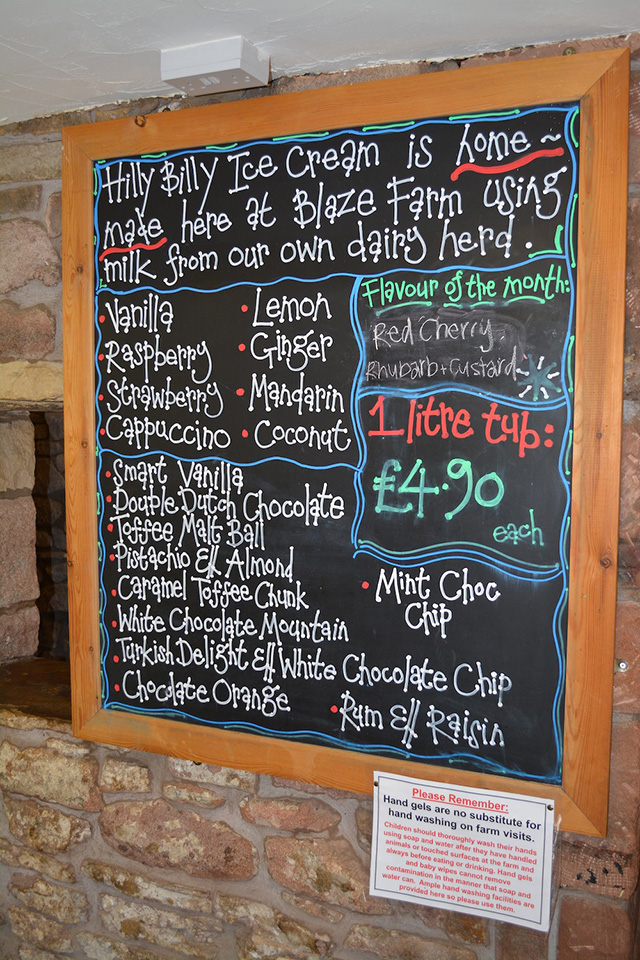 Hilly Billy Ice Cream is home~
made here at Blaze Farm using
milk from our own dairy herd.
• Vanilla
• Raspberry
• Strawberry
• Cappuccino
• Lemon
• Ginger
• Mandarin
• Coconut
Flavour of the month:
Red Cherry
Rhubarb + Custard
1 litre tub:
£4.90
each
• Smart Vanilla
• Double Dutch Chocolate
• Toffee Malt Ball
• Pistachio & Almond
• Caramel Toffee Chunk
• White Chocolate Mountain
• Turkish Delight & White Chocolate Chip
• Chocolate Orange
• Mint Choc
Chip
• Rum & Raisin
Please Remember:
Hand gels are no substitute for
hand washing on farm visits.
Children should thoroughly wash their hands
using soap and water after they have handled
animals or touched surfaces at the farm and
always before eating or drinking. Hand gels
and baby wipes cannot remove
contamination in the manner that soap and
water can. Ample hand washing facilities are
provided here so please use them.